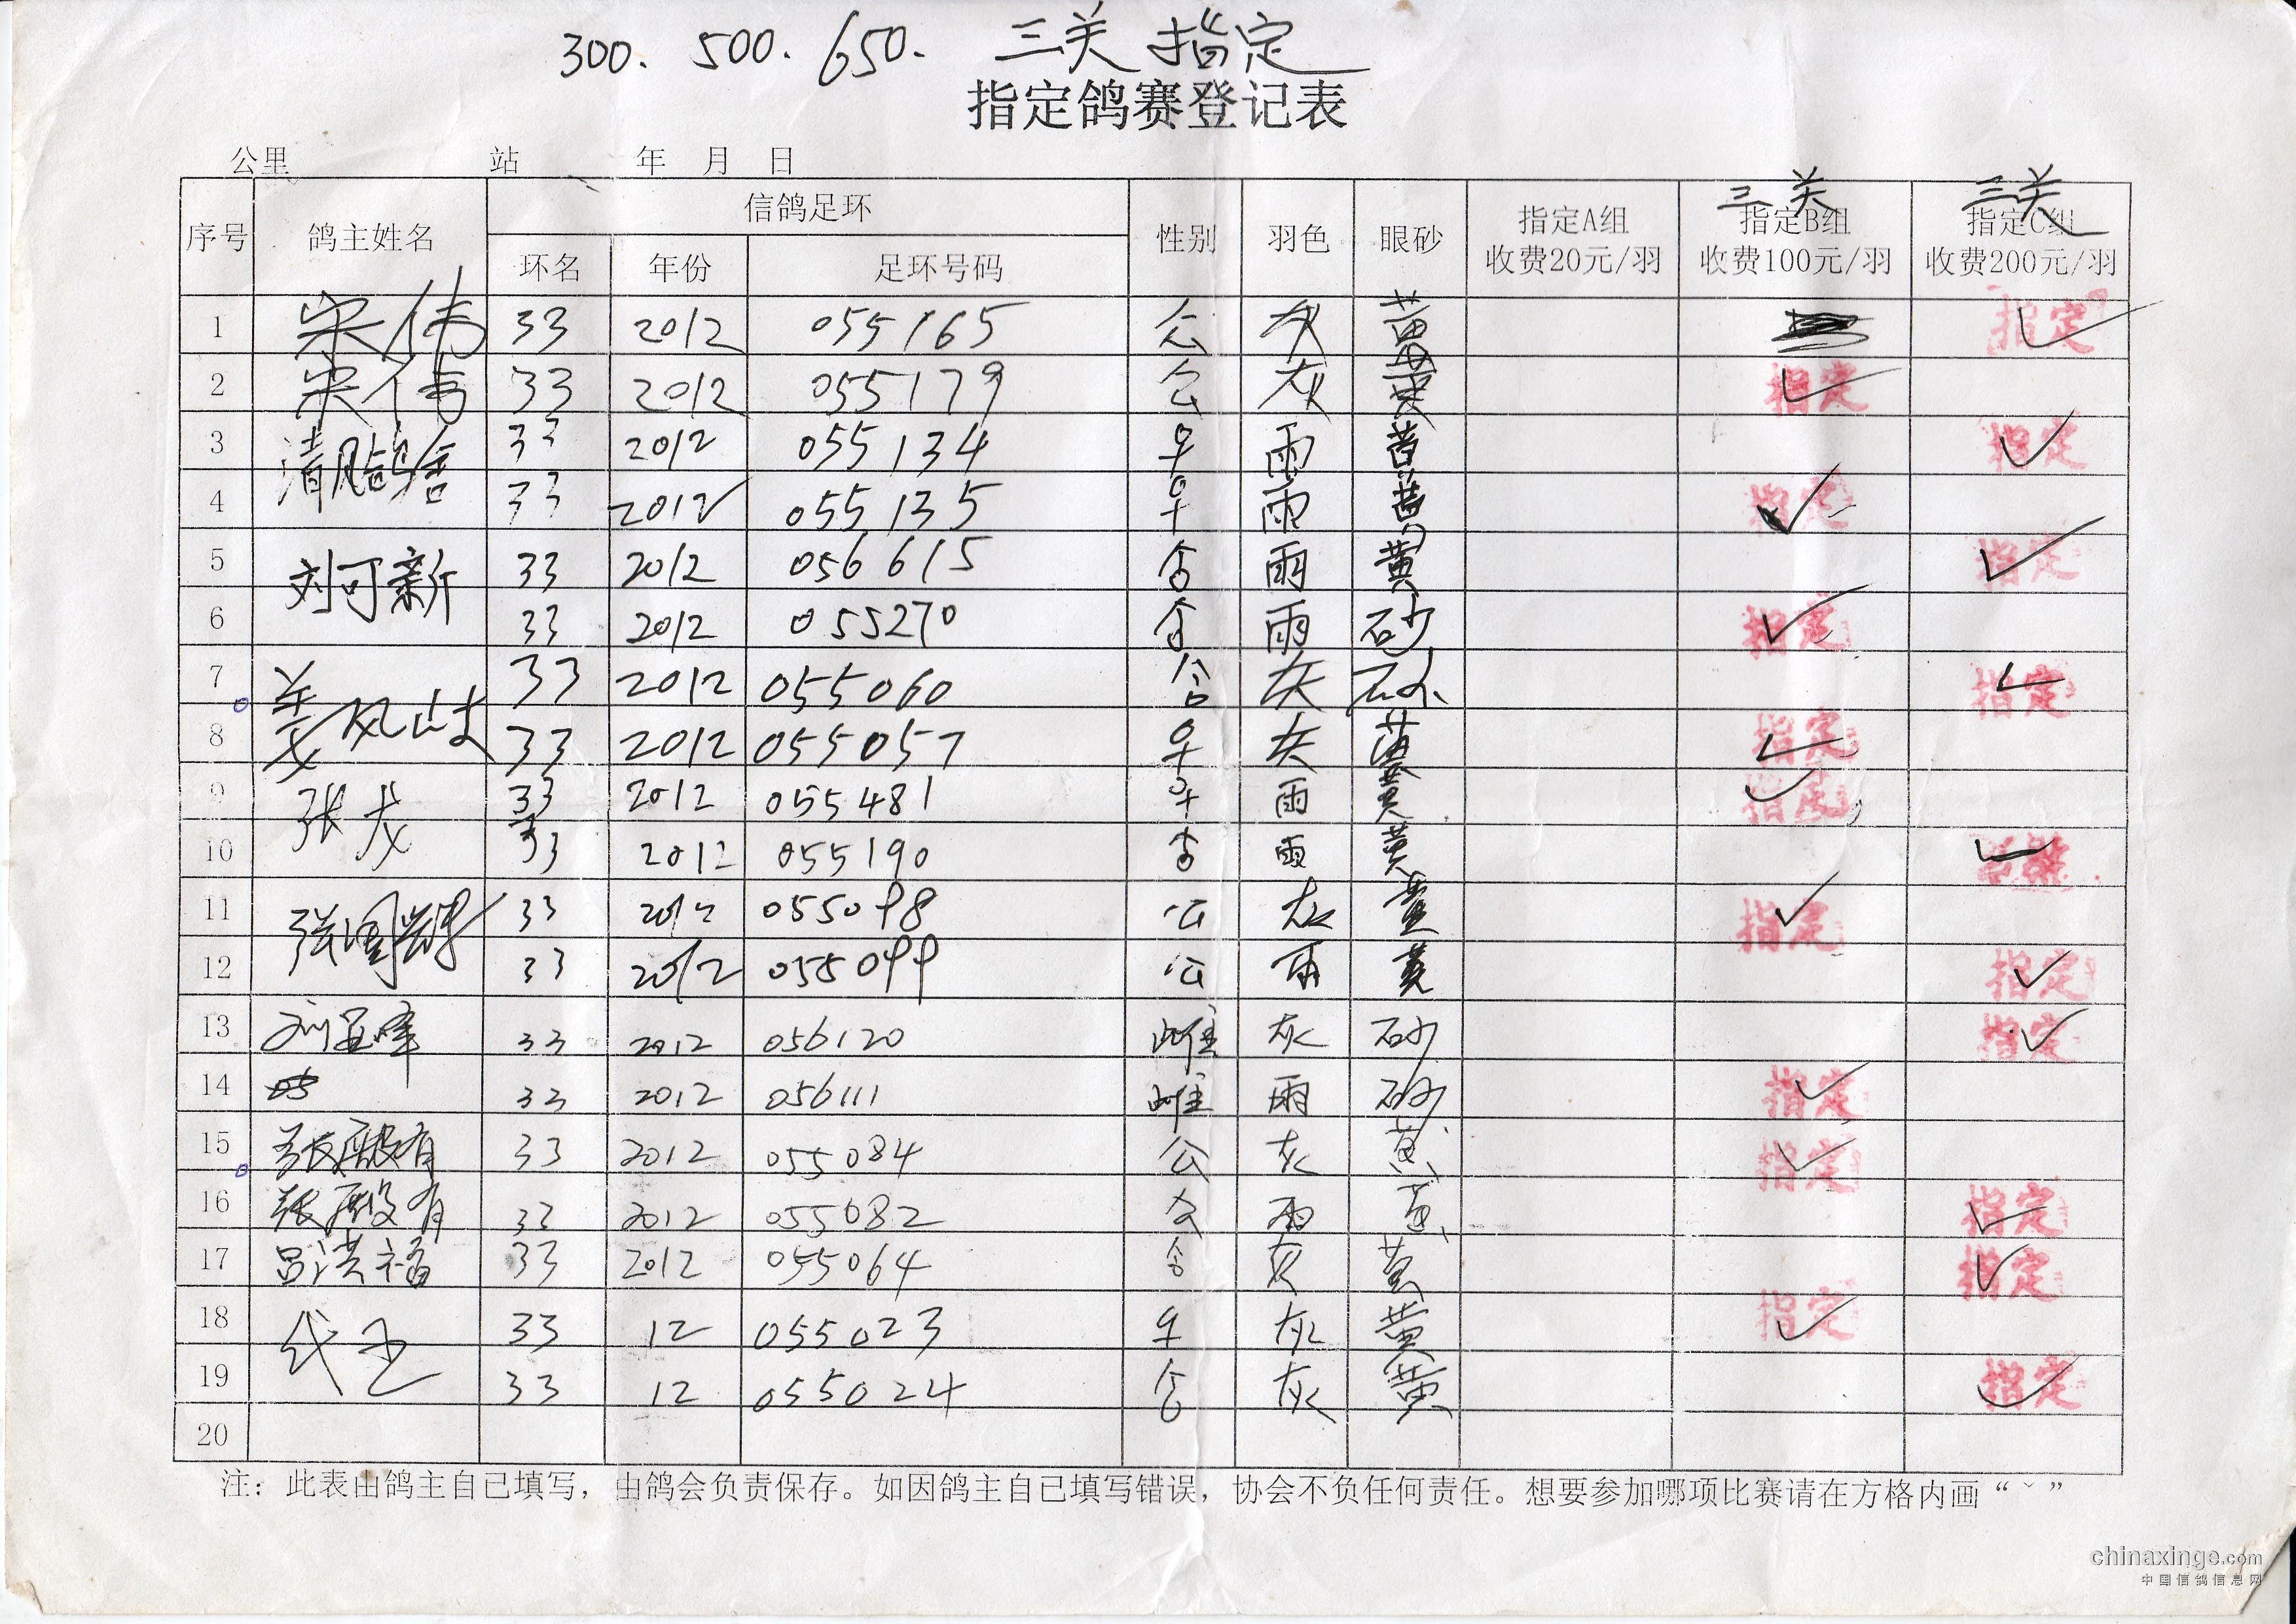 300. 500. 650. 三关 指定
指定鸽赛登记表
公里 站 年 月 日
序号 鸽主姓名 信鸽足环 性别 羽色 眼砂 指定A组 收费20元/羽 三关 指定B组 收费100元/羽 三关 指定C组 收费200元/羽
环名 年份 足环号码
1 宋伟 33 2012 055165 公 灰 黄 指定 ✓
2 宋伟 33 2012 055179 公 灰 黄 指定 ✓
3 清风鸽舍 33 2012 055134 雨 黄 指定 ✓
4 33 2012 055135 雨 黄 指定 ✓
5 刘可新 33 2012 056615 雨 黄 指定 ✓
6 33 2012 055270 雨 砂 指定 ✓
7 姜风岐 33 2012 055060 灰 砂 指定 ✓
8 33 2012 055057 灰 黄 指定 ✓
9 张龙 33 2012 055481 雨 黄 指定 ✓
10 33 2012 055190 雨 黄 ✓
11 33 2012 055098 公 灰 黄 指定 ✓
12 33 2012 055099 公 雨 黄 指定 ✓
13 33 2012 056120 雌 灰 砂 指定 ✓
14 33 2012 056111 雌 雨 砂 指定 ✓
15 张殿有 33 2012 055084 公 灰 黄 指定 ✓
16 张殿有 33 2012 055082 公 雨 黄 指定 ✓
17 吕洪福 33 2012 055064 灰 黄 指定 ✓
18 33 12 055023 灰 黄 指定 ✓
19 33 12 055024 灰 黄 指定 ✓
20
注：此表由鸽主自己填写，由鸽会负责保存。如因鸽主自己填写错误，协会不负任何责任。想要参加哪项比赛请在方格内画“ˇ”
chinaxinge.com
中国信鸽信息网